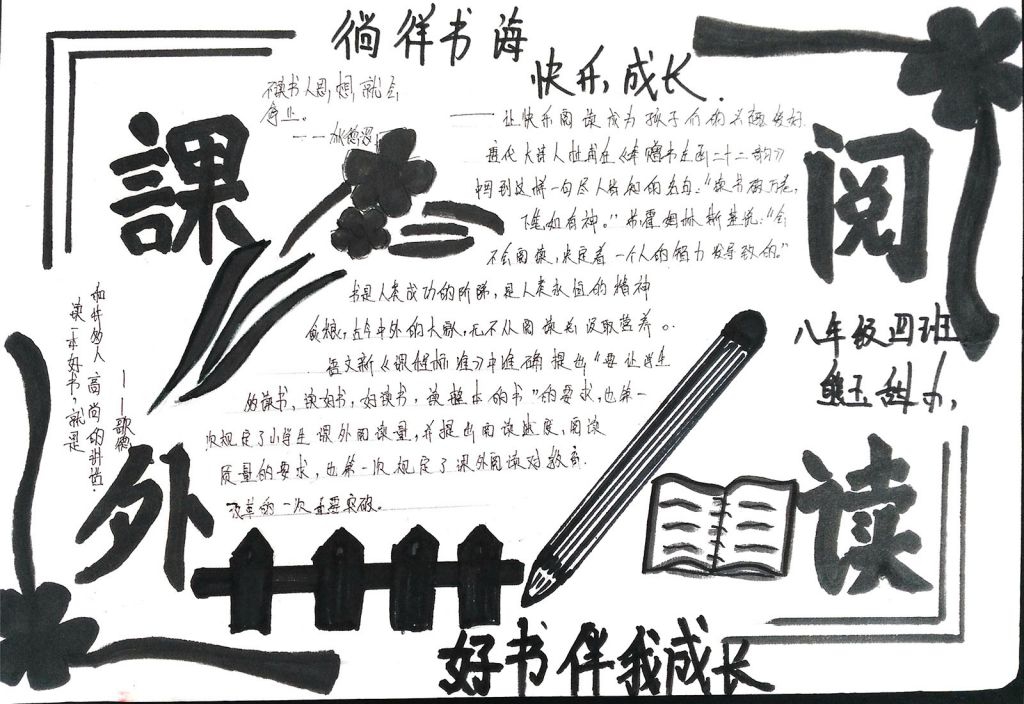 徜徉书海
快乐,成长.
不读书人思想就会
停止。
課
外
阅
读
——让快乐阅读成为孩子们的兴趣爱好.
唐代大诗人杜甫在《奉赠韦左丞二十二韵》
中写到这样一句尽人皆知的名句:“读书破万卷,
下笔如有神。”希霍姆林斯基说:“会
不会阅读,决定着一个人的智力发展
书是人类成功的阶梯,是人类永恒的精神
食粮,古今中外的大家,无不从阅读汲取营养。
语文新《课程标准》中准确提出“要让学生
好读书、读好书,读整本的书”的要求,也第一
次规定了小学生课外阅读量,并提出阅读速度,阅读
质量的要求,也第一次规定了课外阅读对教育
改革的一次重要突破。
读一本好书,就是
和许多人高尚的讲话.
——歌德
八年级四班
好书伴我成长